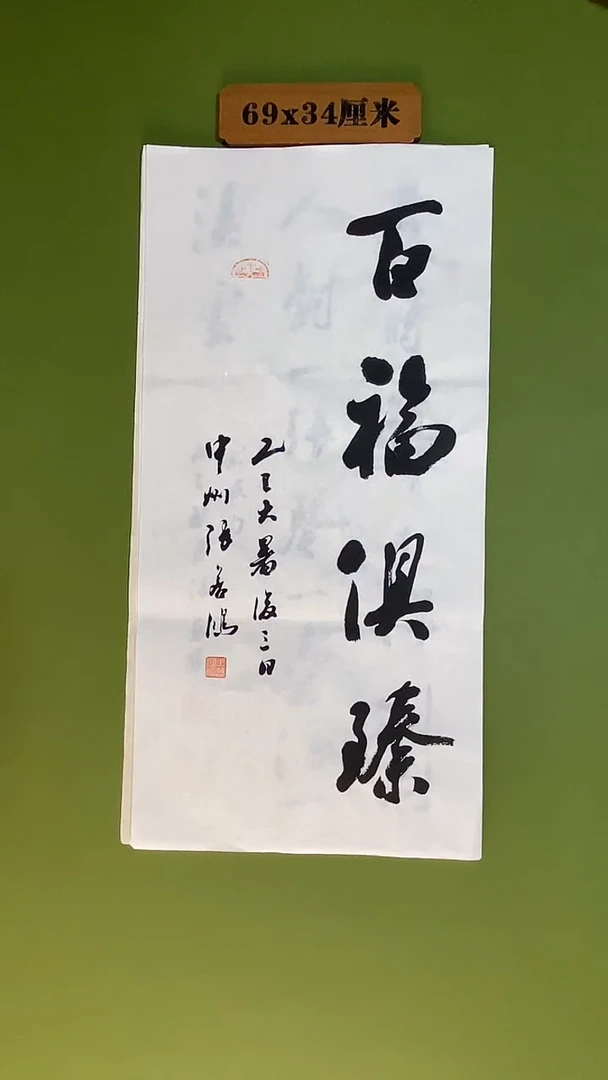 69x34厘米
百福俱臻
乙巳大暑後三日
中州張善鴻